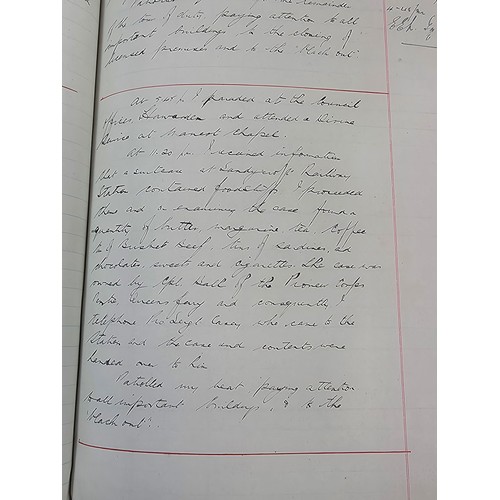 Patrolled for the remainder
of the tour of duty paying attention to all
important buildings to the closing of
licensed premises and to the "black out"
At 5.45 p. I paraded at the Council
offices Hawarden and attended a Divine
Service at Manor Chapel.
At 11.30 p. I received information
that a suitcase at Sandycroft Railway
Station contained foodstuffs. I proceeded
there and on examining the case found a
quantity of butter, margarine, tea, coffee
tin of Brisket beef, tins of sardines, and
chocolates, sweets and cigarettes. The case was
owned by Cpl. Hall of the Pioneer Corps
Queensferry and consequently I
telephone Casey who came to the
Station and the case and contents were
handed over to him
Patrolled my beat paying attention
to all important buildings, & to the
"black out".